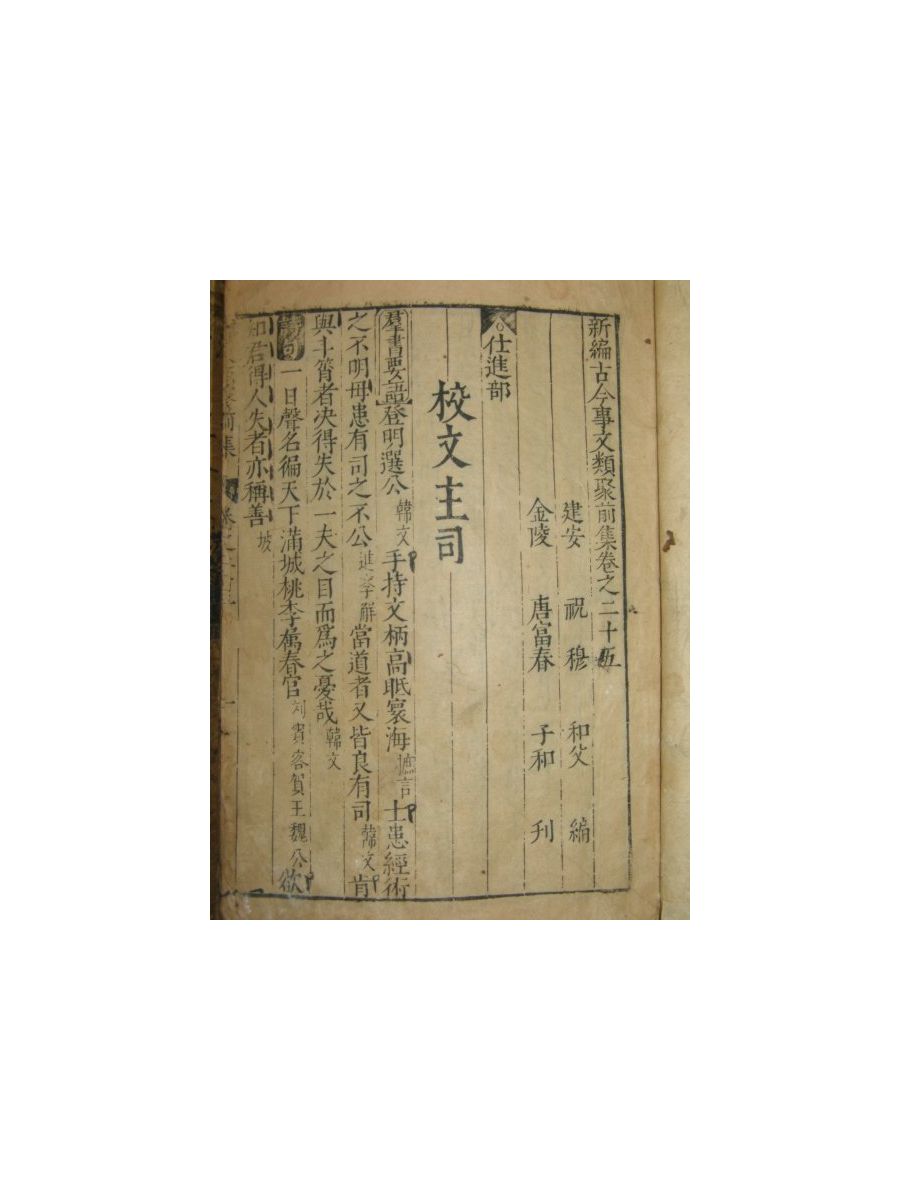 新編古今事文類聚前集卷之二十五
建安 祝 穆 和父 編
金陵 唐富春 子和 刋
仕進部
校文主司
羣書要語登明選公韓文手持文柄高眂寰海摭言士患經術
之不明毋患有司之不公進學解當道者又皆良有司韓文肯
與斗筲者决得失於一夫之目而爲之憂哉韓文
詩句一日聲名徧天下滿城桃李属春官刘賓客賀王魏公欲
知君得人失者亦稱善坡